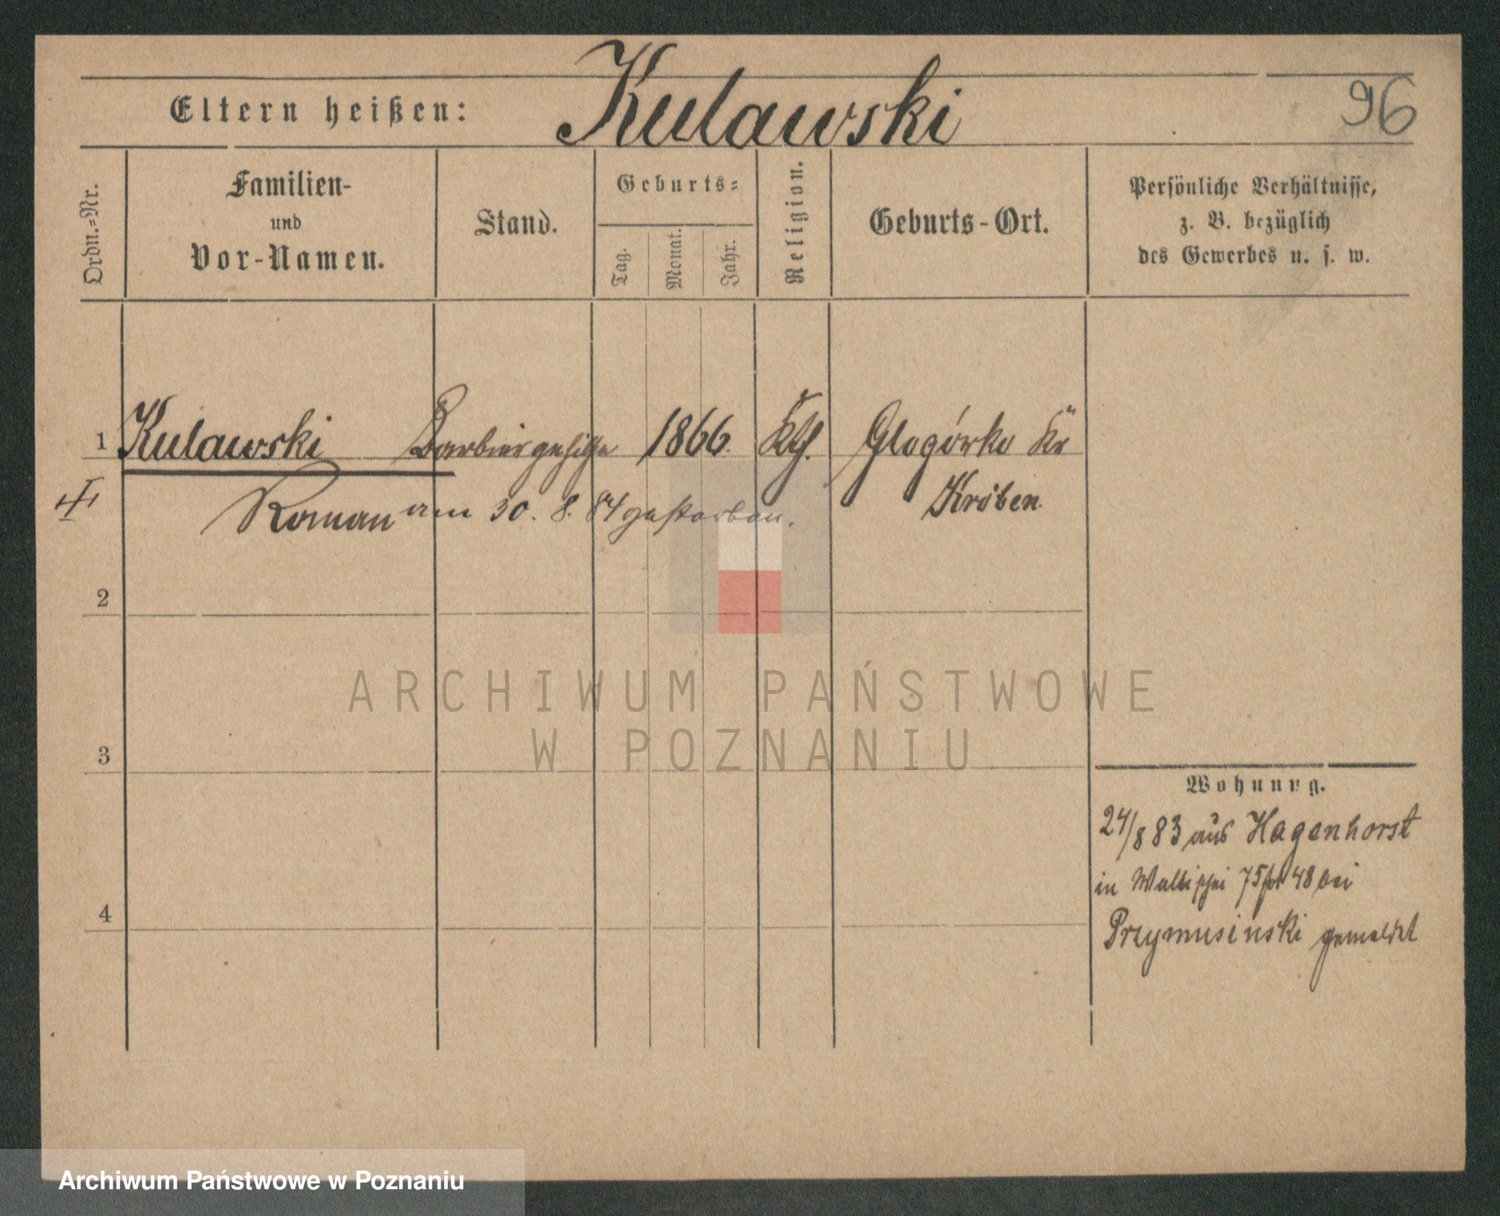 Kulawski
96
Eltern heißen:
Ordn.=Nr.
Familien-
und
Vor-Namen.
Stand.
Geburts=
Tag.
Monat.
Jahr.
Religion.
Geburts-Ort.
Persönliche Verhältnisse,
z. B. bezüglich
des Gewerbes u. s. w.
1 Kulawski Barbiergehilfe 1866. Kth. Glogówko Kr
Roman am 30. 8. 84 gestorben. Kröben.
2
ARCHIWUM PAŃSTWOWE
W POZNANIU
3
Wohnung.
24/8 83 aus Hagenhorst
in Wallischei 75 48 bei
4
Przymusinski gemeldet
Archiwum Państwowe w Poznaniu